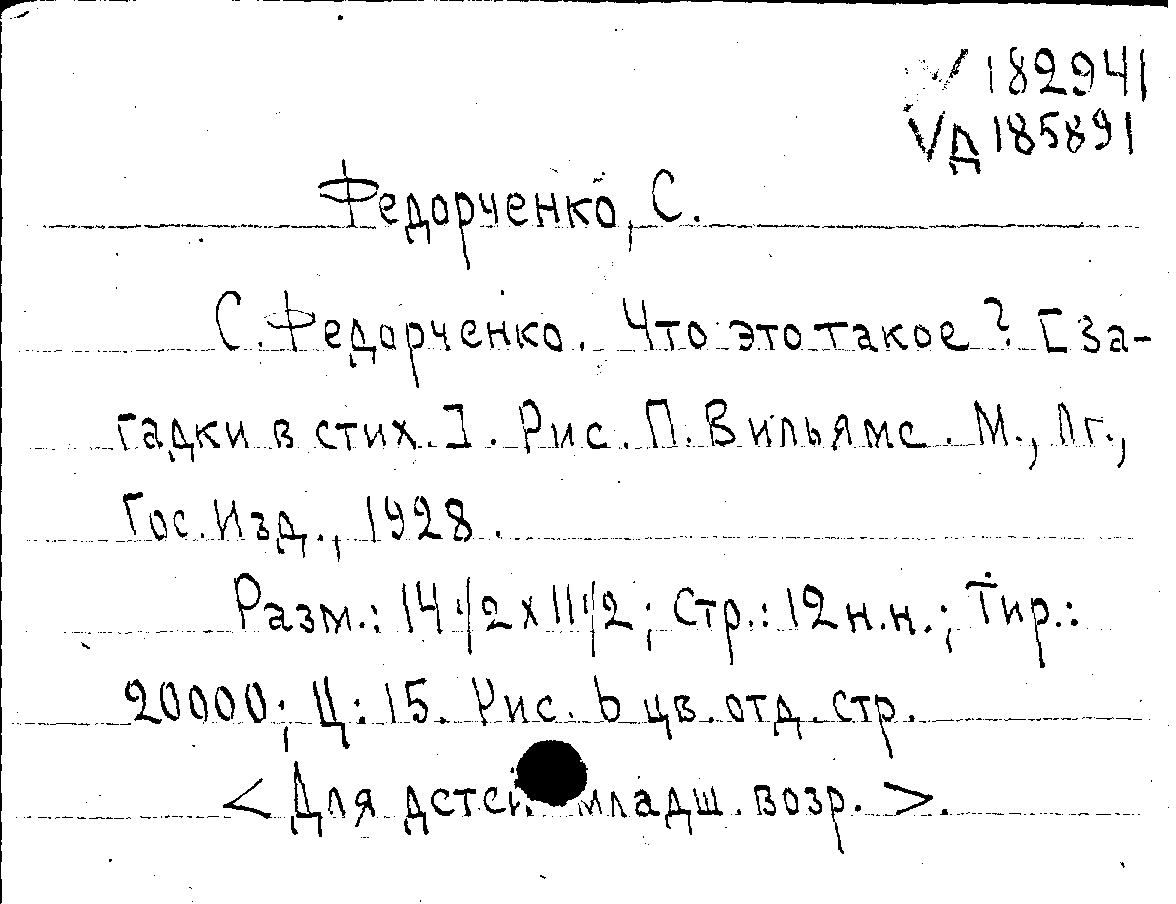 V 182941
VД 185891
Федорченко, С.
С. Федорченко. Что это такое? [За-
гадки в стих.]. Рис. П. Вильямс. М., Лг.,
Гос. Изд., 1928.
Разм.: 14 1/2 х 11 1/2; Стр.: 12 н.н.; Тир.:
20000; Ц: 15. Рис. 6 цв. отд. стр.
<Для детей младш. возр.>.